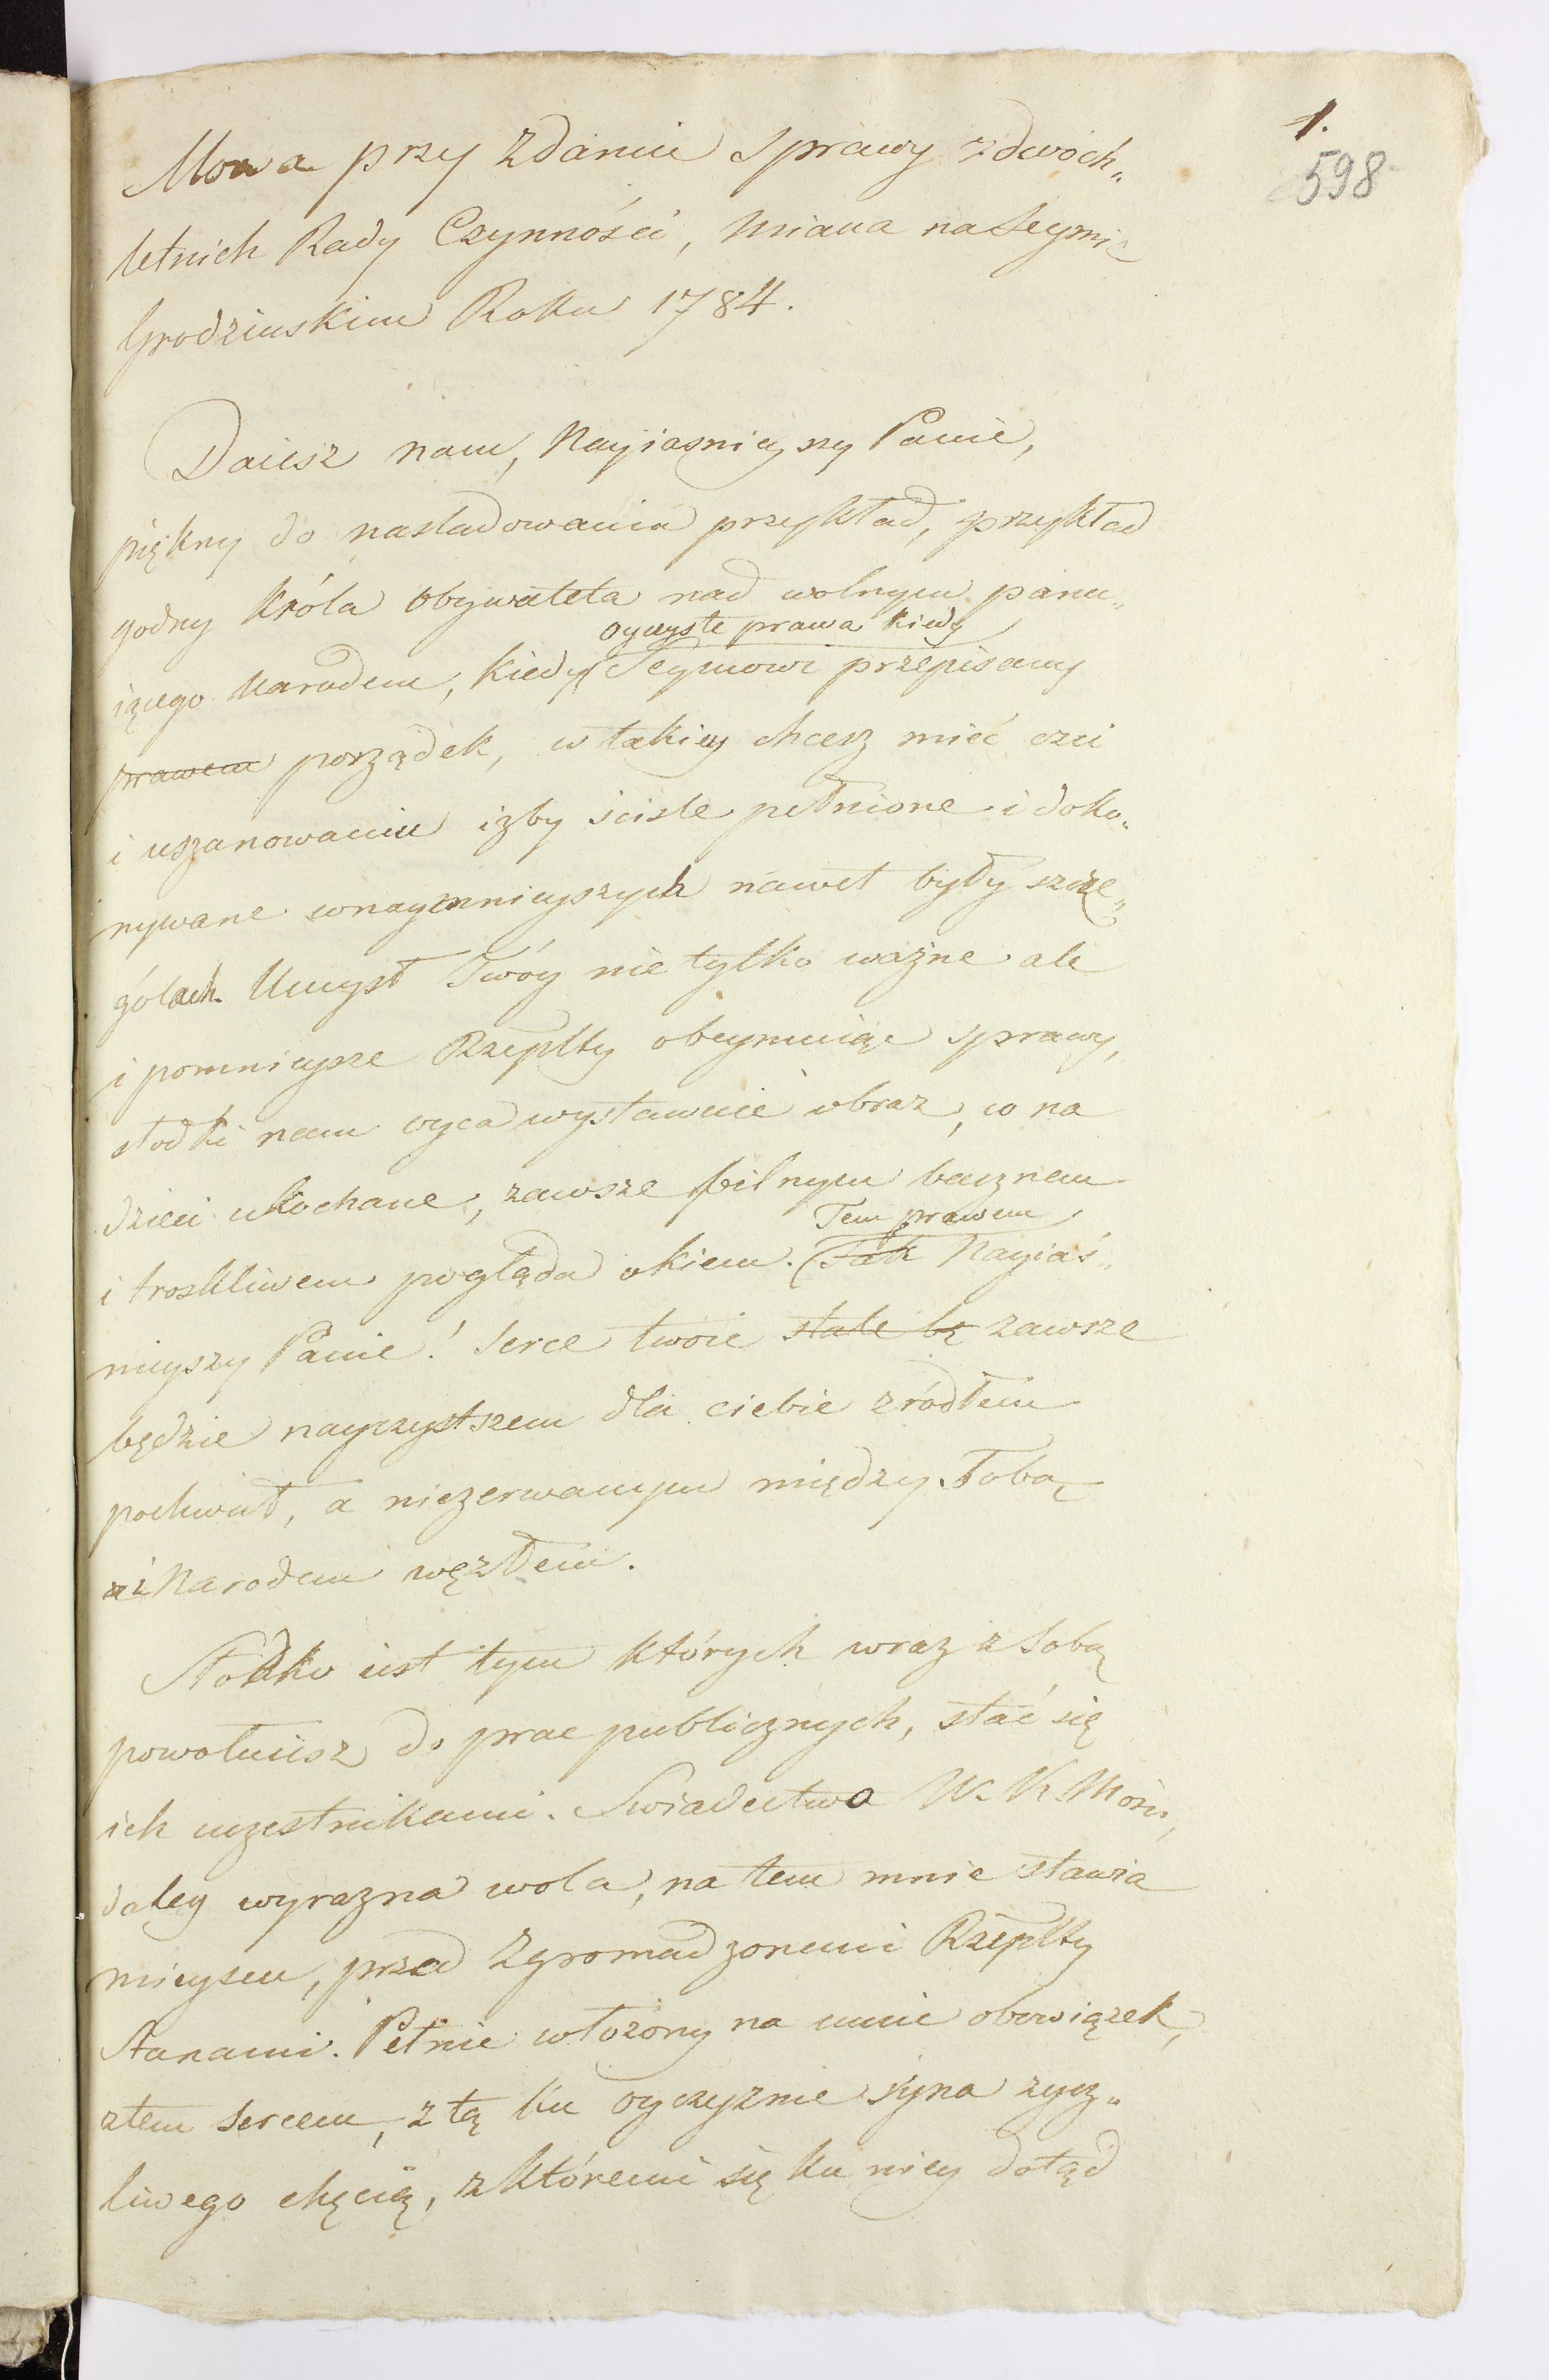 1.
598
Mowa przy zdaniu sprawy z dwóch„
letnich Rady Czynności, miana na Seymie
Grodzinskim Roku 1784.
Daiesz nam, Nayiasnieyszy Panie,
piękny do nasladowania przykład, przykład
godny Króla Obywatela nad wolnym panu„
oyczyste prawa kiedy
iącego Narodem, kiedy Seymowi przepisany
prawem porządek, w takiey chcesz mieć czci
i uszanowaniu izby scisle pełnione i doko„
nywane w naymnieyszych nawet były szcze„
gólach. Umysł Twóy nie tylko ważne ale
i pomnieysze Rzeplty obeymuiąc sprawy,
słodki nam oyca wystawuie obraz, co na
dzieci ukochane, zawsze pilnym bacznem
Tem prawem
i troskliwem pogląda okiem. Tak Nayiaś„
nieyszy Panie! Serce twoie stale bę zawsze
będzie nayczystszem dla ciebie zródłem
pochwał, a niezerwanym między Tobą
i Narodem węzłem.
Słodko iest tym których wraz z Sobą
powołuiesz do prac publicznych, stać się
ich uczestnikami. Swiadectwo W. K. Mości,
daley wyrazna wola, na tem mnie stawia
mieyscu, przed Zgromadzonemi Rzeplty
Stanami. Pełnie włożony na mnie obowiązek,
z tem sercem, z tą ku oyczyznie syna życz„
liwego chęcią, z któremi się ku niey dotąd